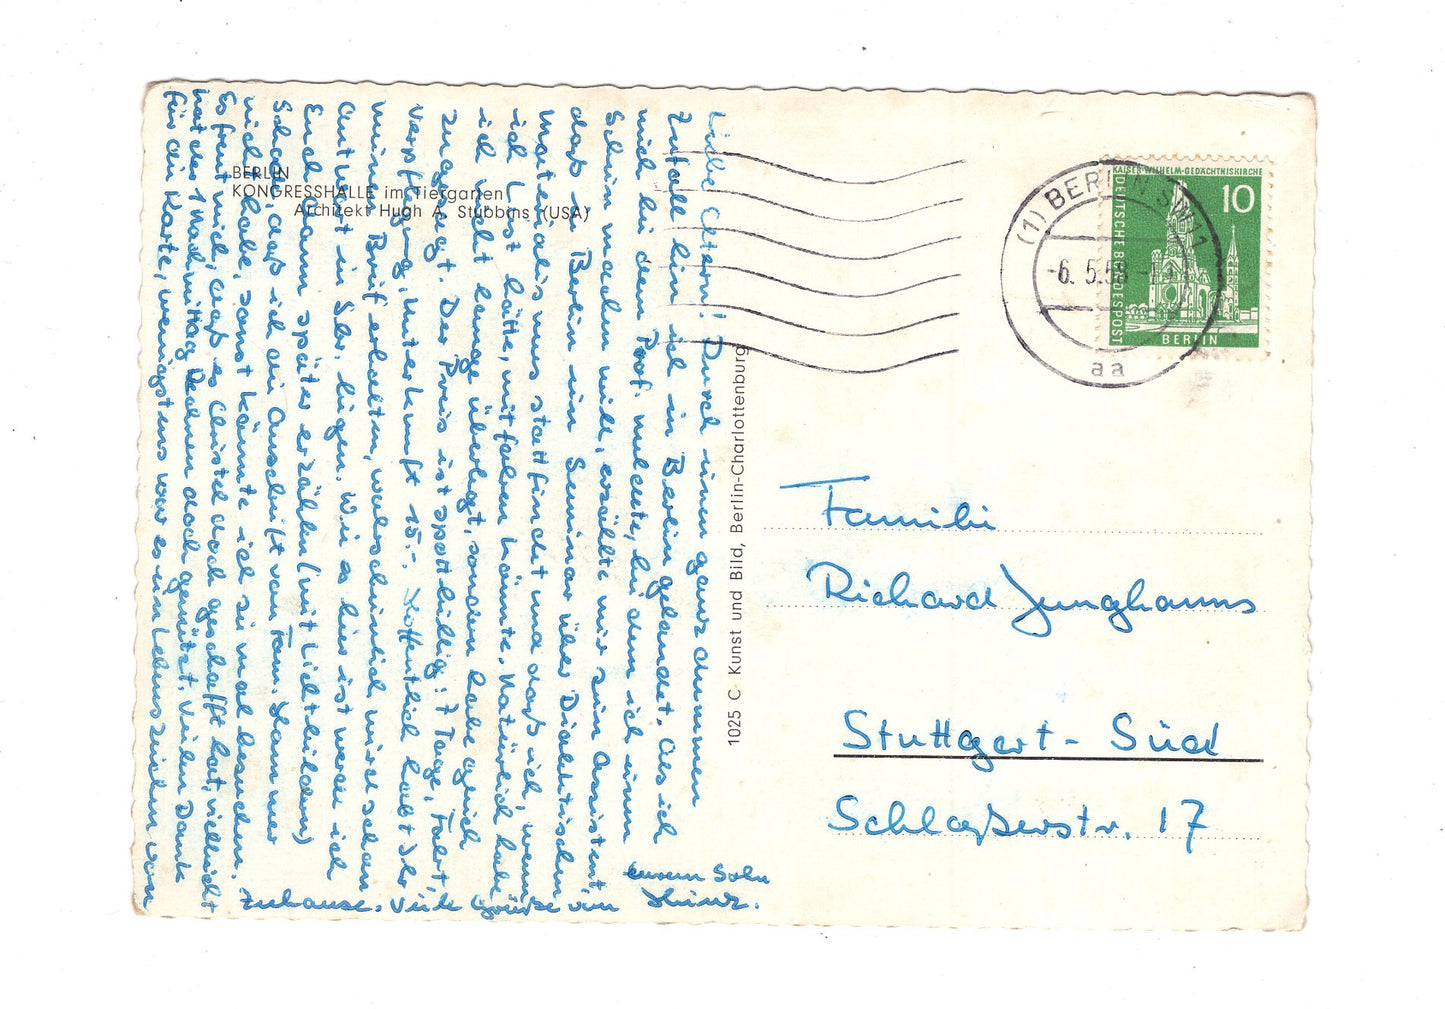 BERLIN
KONGRESSHALLE im Tiergarten
Architekt Hugh A. Stubbins (USA)
Liebe Eltern! Durch einen ganz dummen
Zufall bin ich in Berlin gelandet. Als ich
mich bei dem Prof. meldete, bei dem ich
Schein machen will, erzählte mir sein Assistent,
daß in Berlin ein Seminar über Dialektischen
Materialismus stattfindet und daß ich, wenn
ich Lust hätte, mitfahren könnte. Natürlich habe
ich nicht lange überlegt, sondern habe gleich
zugesagt. Der Preis ist spottbillig: 7 Tage, Fahrt,
Verpflegung, Unterkunft 15.-. Hoffentlich habt Ihr
meinen Brief erhalten, wahrscheinlich wird schon
Antwort in Tbr. liegen. Wie es hier ist werde ich
Euch dann später erzählen (mit Lichtbildern)
Schade, daß ich die Anschrift von Fam. Hammer
nicht habe, sonst könnte ich sie mal besuchen.
Es freut mich, daß es Christel doch geschafft hat, vielleicht
hat das 1 Mal mittag Rechnen doch genützt. Vielen Dank
für die Karte, wenigstens war es ein Lebenszeichen von
Zuhause. Viele Grüße von
eurem Sohn
Heinz.
1025 C Kunst und Bild, Berlin-Charlottenburg
KAISER-WILHELM-GEDÄCHTNISKIRCHE
10
DEUTSCHE BUNDESPOST
BERLIN
(1) BERLIN SW 11
-6. 5. 58
aa
Familie
Richard Junghanns
Stuttgart-Süd
Schloßerstr. 17